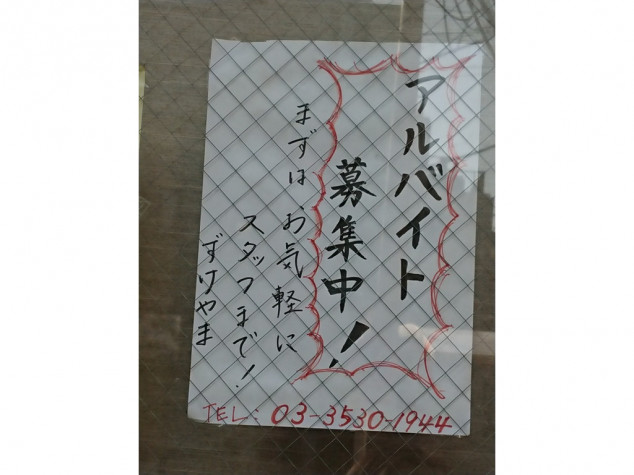 アルバイト
募集中!
まずはお気軽に
スタッフまで!
ずけやま
TEL: 03-3530-1944